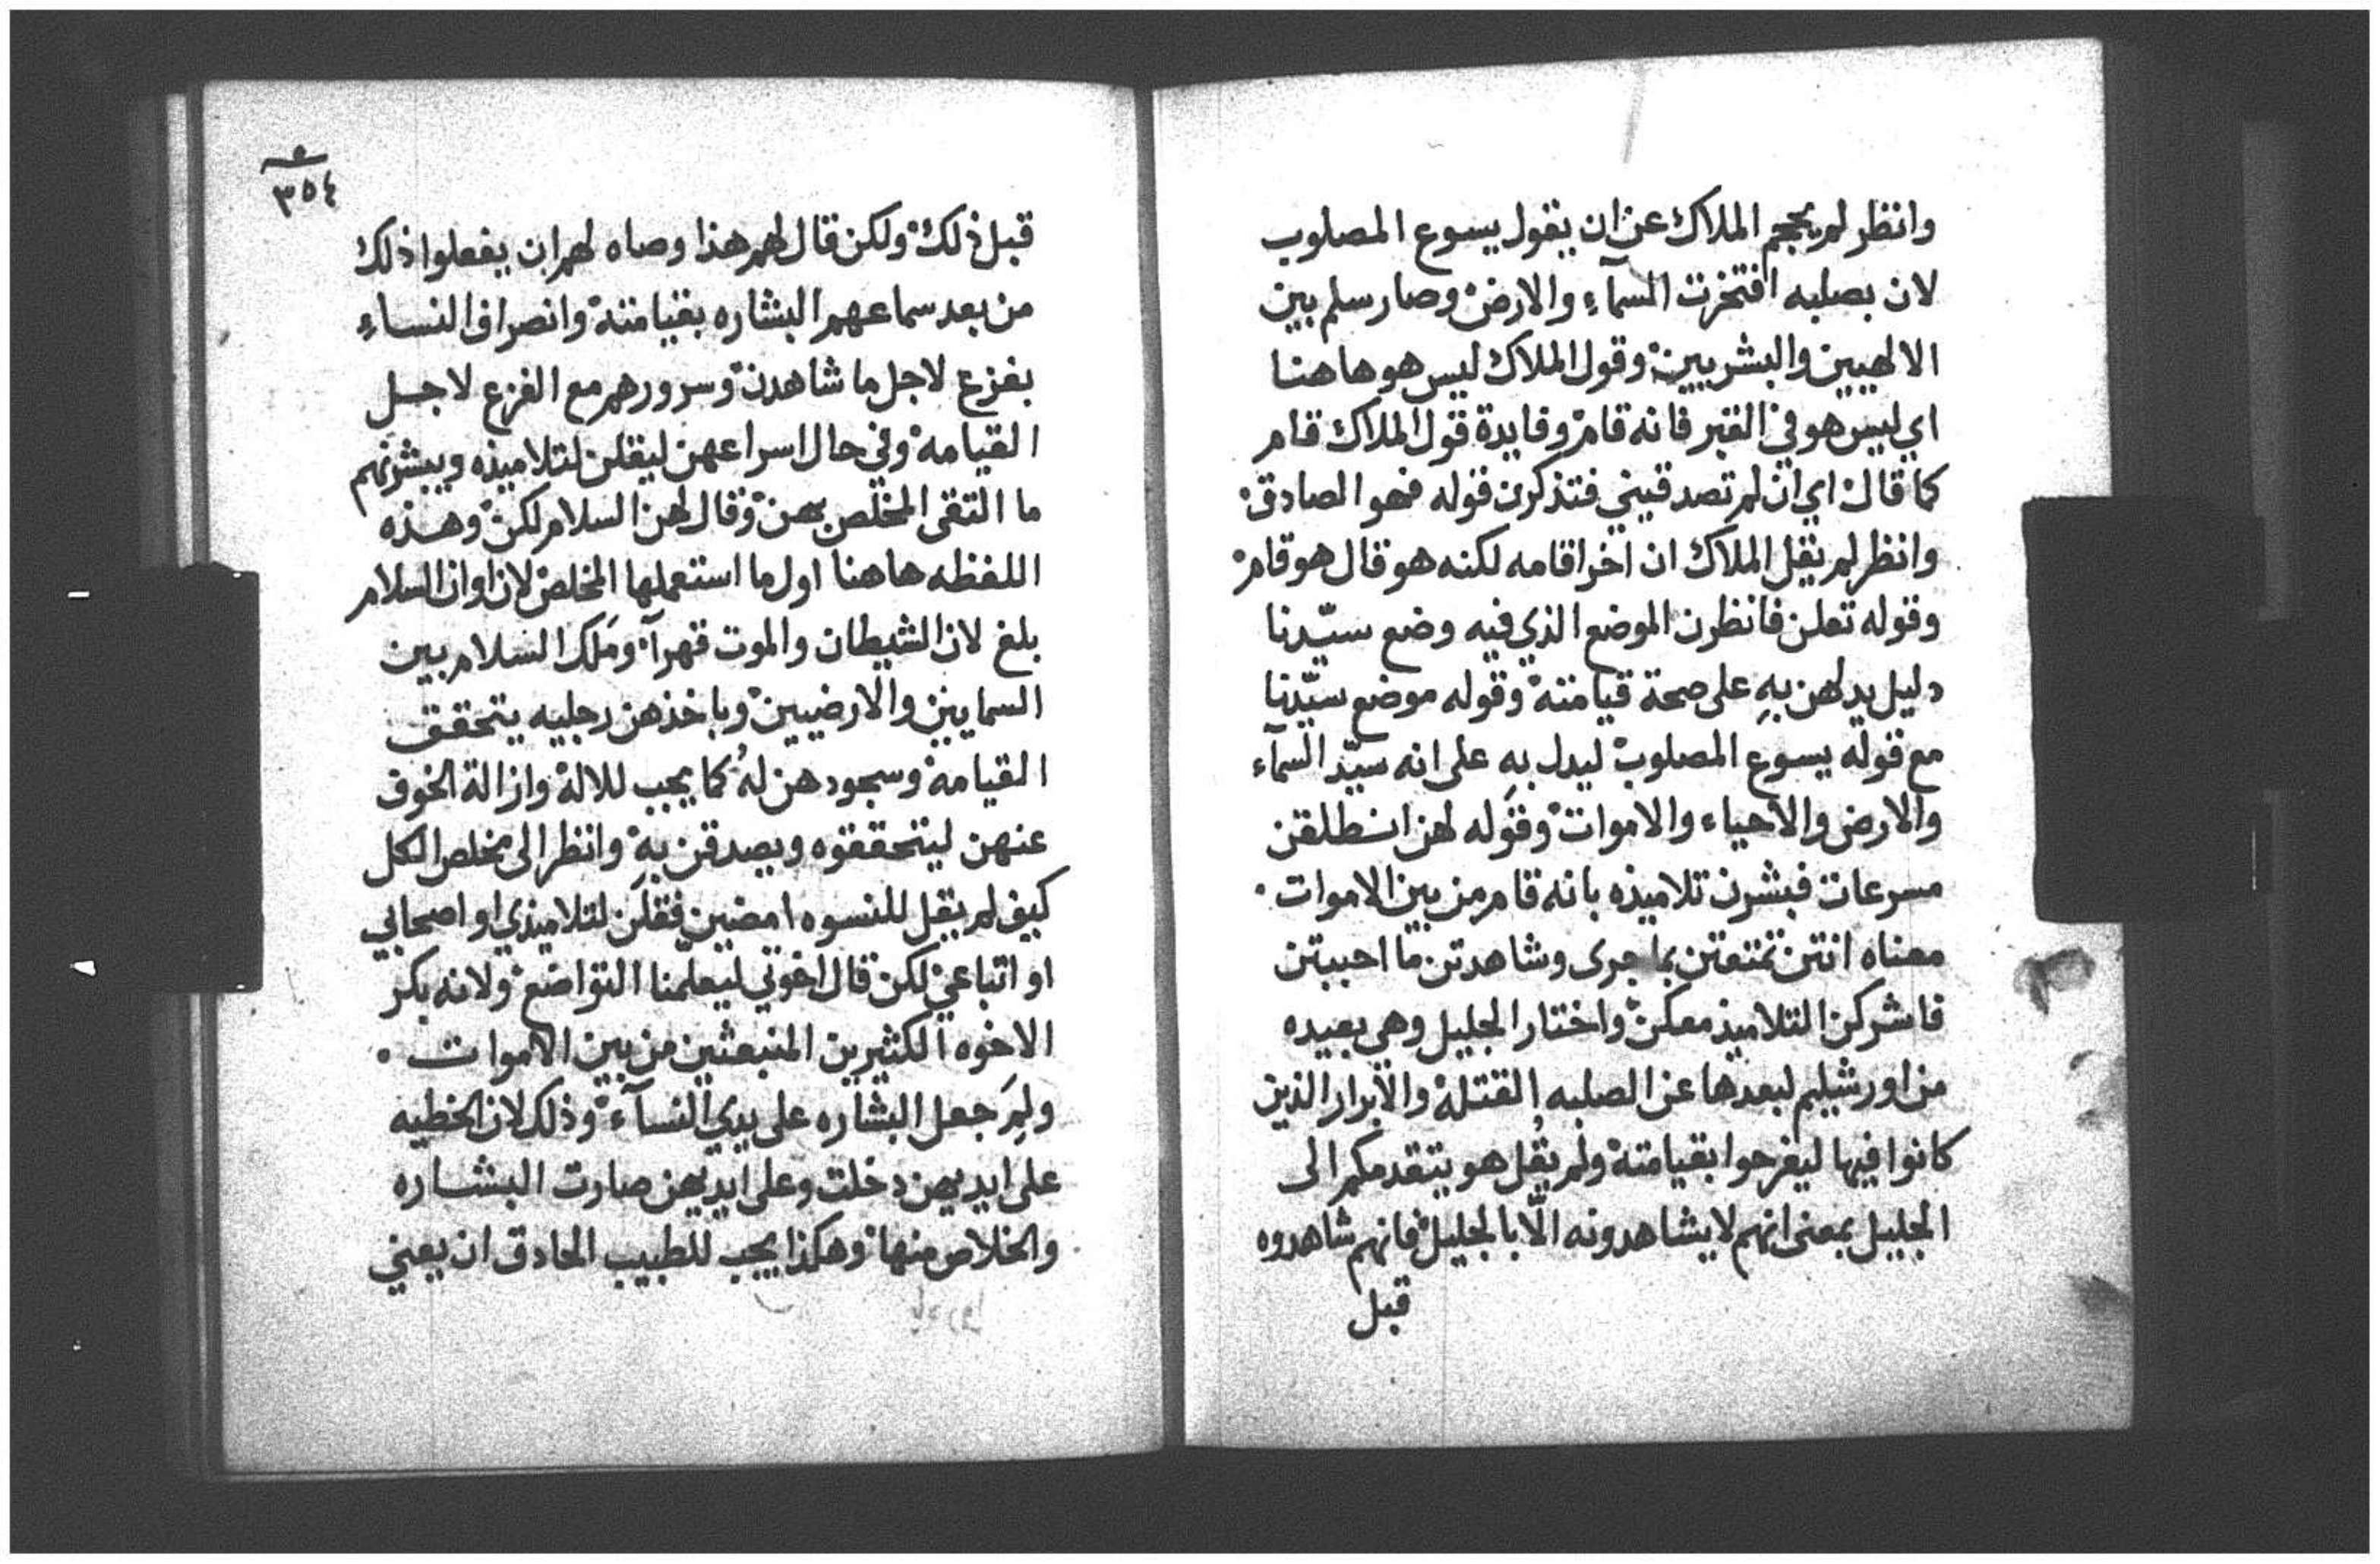 وانظر لم يحجم الملاك عن ان يقول يسوع المصلوب
لان بصلبه افتخرت السمآءِ والارض وصار سلم بين
الالهيين والبشريين وقول الملاك ليس هو هاهنا
اي ليس هو في القبر فانه قام وفايدة قول الملاك قام
كما قال اي ان لم تصدقيني فتذكرن قوله فهو الصادق
وانظر لم يقل الملاك ان اخر اقامه لكنه هو قال هو قام
وقوله تعلن فانظرن الموضع الذي فيه وضع سيّدنا
دليل يدلهن بهِ على صحة قيامته وقوله موضع سيّدنا
مع قوله يسوع المصلوب ليدل بهِ على انه سيّد السمآء
والارض والاحياء والاموات وقوله لهن انطلقن
مسرعات فبشرن تلاميذه بانه قام من بين الاموات
معناه انتن تمتعتن بما جرى وشاهدتن ما احببتن
فاشركن التلاميذ معكن واختار الجليل وهي بعيده
من اورشليم لبعدها عن الصلبه القتله والابرار الذين
كانوا فيها ليفرحوا بقيامته ولم يقُل هو يتقدمكم الى
الجليل بمعنى انهم لا يشاهدونه الّا بالجليل فانهم شاهدوه
قبل
٣٥٤
قبل ذلك ولكن قال لهم هذا وصاه لهم ان يفعلوا ذلك
من بعد سماعهم البشاره بقيامته وانصراف النساءِ
بفزع لاجل ما شاهدن وسرورهم مع الفزع لاجل
القيامه وفي حال اسراعهن ليقلن لتلاميذه ويبشرنهم
ما التقى المخلص بهن وقال لهن السلام لكن وهذه
اللفظه هاهنا اول ما استعملها المخلص لان اوان السلام
بلغ لان الشيطان والموت قهرآ ومَلك السلام بين
السماييين والارضيين وباخذهن رجليه يتحقق
القيامه وسجودهن لهُ كما يجب للاله وازالة الخوف
عنهن ليتحققوه ويصدقن بهِ وانظر الى مخلص الكل
كيف لم يقل للنسوه امضين فقلن لتلاميذي او اصحابي
او اتباعي لكن قال اخوتي ليعلّمنا التواضع ولانه بكر
الاخوه الكثيرين المنبعثين من بين الاموات
ولِمَ جعل البشاره على يدي النسآء وذلك لان الخطيه
على ايديهن دخلت وعلى ايديهن صارت البشاره
والخلاص منها وهكذا يجب للطبيب الحادق ان يعني